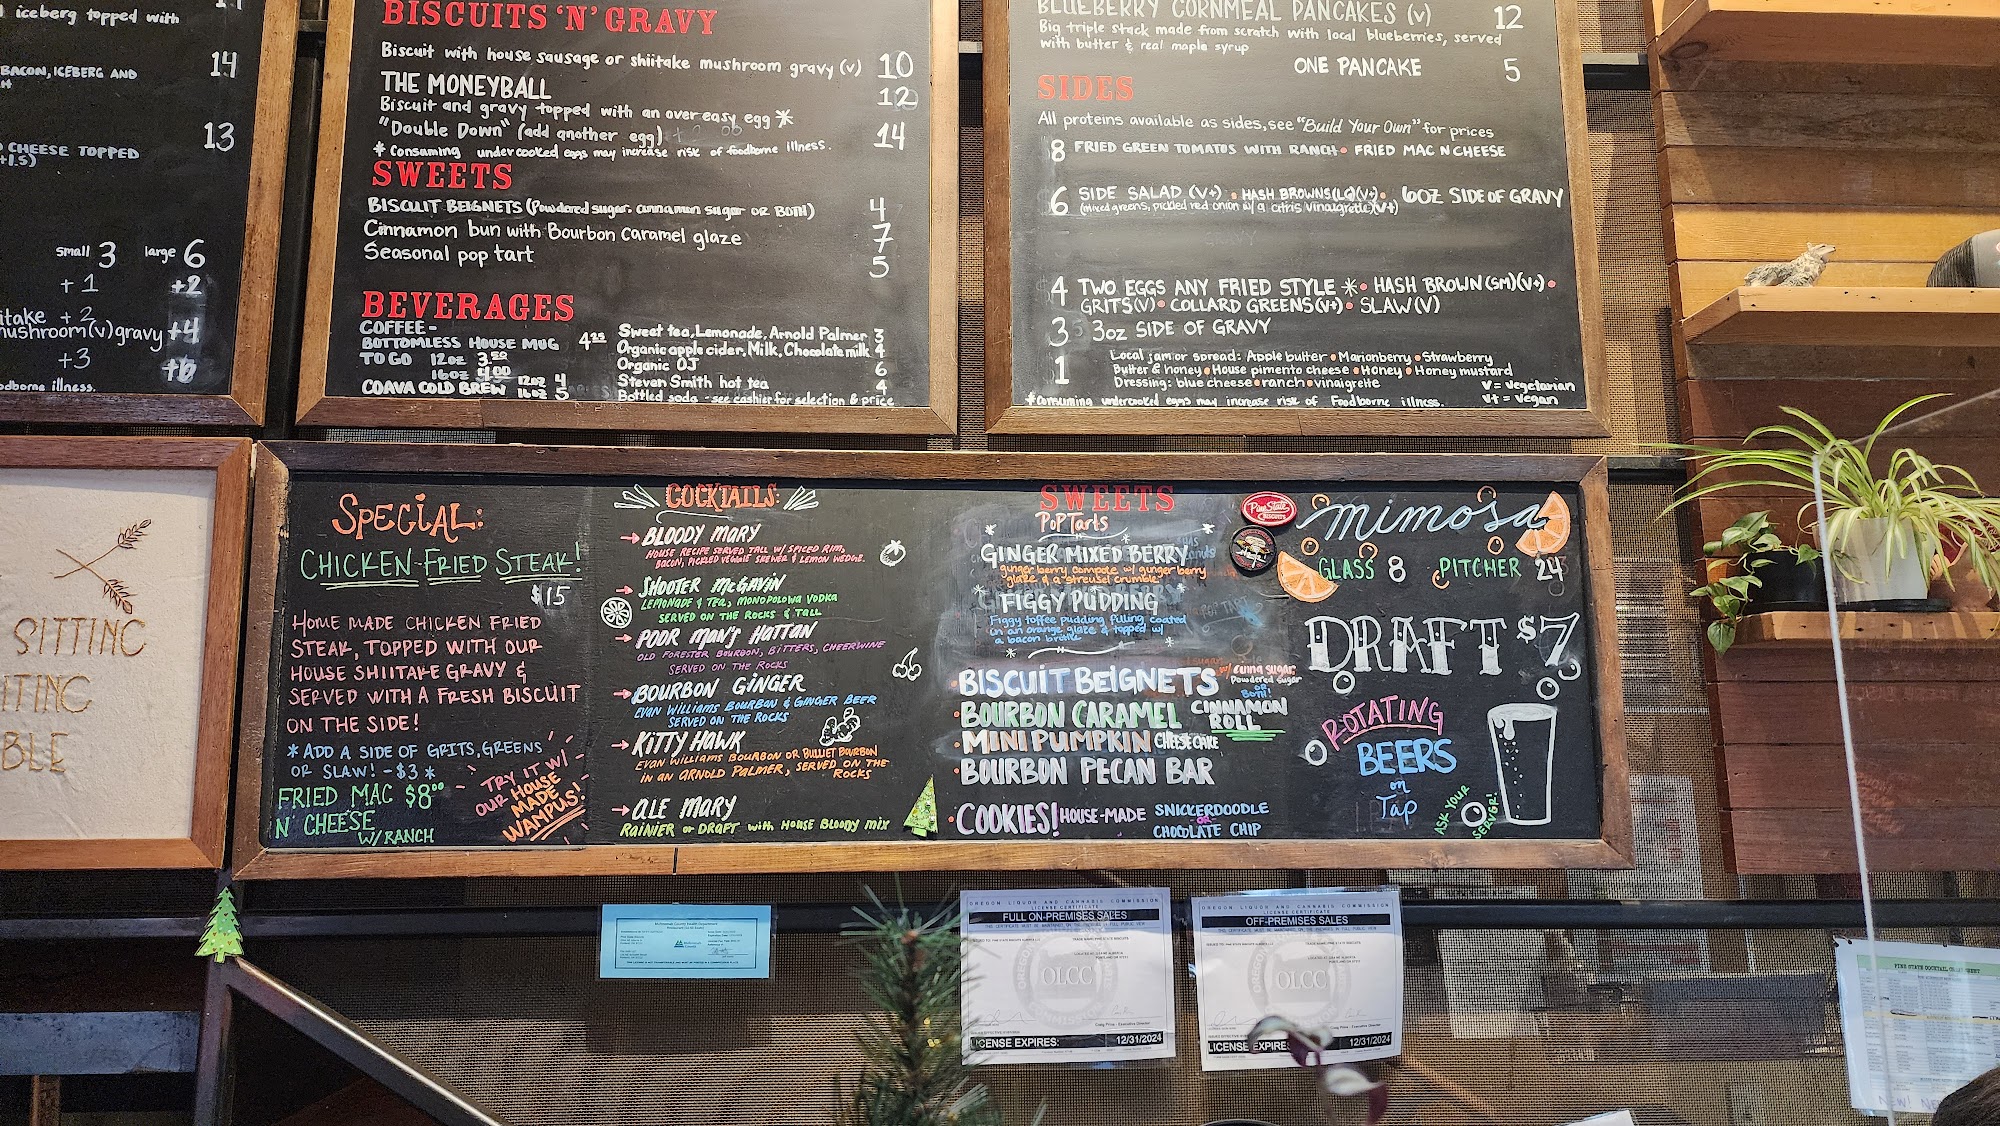 iceberg topped with
14
BACON, ICEBERG AND
13
CHEESE TOPPED
+1.5)
small 3 large 6
+ 1 +2
itake + 2
mushroom (v) gravy +4
+3 +6
odborne illness.
BISCUITS 'N' GRAVY
Biscuit with house sausage or shiitake mushroom gravy (v) 10
THE MONEYBALL 12
Biscuit and gravy topped with an over easy egg *
"Double Down" (add another egg) 14
* Consuming undercooked eggs may increase risk of foodborne illness.
SWEETS
BISCUIT BEIGNETS (Powdered sugar, cinnamon sugar OR BOTH) 4
Cinnamon bun with Bourbon Caramel glaze 7
Seasonal pop tart 5
BEVERAGES
COFFEE -
BOTTOMLESS HOUSE MUG 4.25
TO GO 12oz 3.50
16oz 4.00
COAVA COLD BREW 12oz 4
16oz 5
Sweet tea, Lemonade, Arnold Palmer 3
Organic apple cider, Milk, Chocolate milk 4
Organic OJ 6
Steven Smith hot tea 4
Bottled soda - see cashier for selection & price
BLUEBERRY CORNMEAL PANCAKES (v) 12
Big triple stack made from scratch with local blueberries, served
with butter & real maple syrup
ONE PANCAKE 5
SIDES
All proteins available as sides, see "Build Your Own" for prices
8 FRIED GREEN TOMATOS WITH RANCH • FRIED MAC N CHEESE
6 SIDE SALAD (V+) • HASH BROWNS (LG)(V+) • 6OZ SIDE OF GRAVY
(mixed greens, pickled red onion w/ a citris vinaigrette)(v+)
4 TWO EGGS ANY FRIED STYLE * • HASH BROWN (SM)(V+) •
GRITS (V) • COLLARD GREENS (V+) • SLAW (V)
3 3oz SIDE OF GRAVY
1 Local jam or spread: Apple butter • Marionberry • Strawberry
Butter & honey • House pimento cheese • Honey • Honey mustard
Dressing: blue cheese • ranch • vinaigrette
V = Vegetarian
V+ = Vegan
* Consuming undercooked eggs may increase risk of foodborne illness.
SITTING
ITING
BLE
SPECIAL:
CHICKEN-FRIED STEAK!
$15
HOME MADE CHICKEN FRIED
STEAK, TOPPED WITH OUR
HOUSE SHIITAKE GRAVY &
SERVED WITH A FRESH BISCUIT
ON THE SIDE!
* ADD A SIDE OF GRITS, GREENS
OR SLAW! - $3 *
FRIED MAC $8.00
N' CHEESE
W/ RANCH
- TRY IT W/
OUR HOUSE
MADE
WAMPUS!
COCKTAILS:
→ BLOODY MARY
HOUSE RECIPE SERVED TALL W/ SPICED RIM,
BACON, PICKLED VEGGIE SKEWER & LEMON WEDGE.
→ SHOOTER McGAVIN
LEMONADE & TEA, MONOPOLOWA VODKA
SERVED ON THE ROCKS & TALL
→ POOR MAN'S HATTAN
OLD FORESTER BOURBON, BITTERS, CHEERWINE
SERVED ON THE ROCKS
→ BOURBON GINGER
EVAN WILLIAMS BOURBON & GINGER BEER
SERVED ON THE ROCKS
→ KITTY HAWK
EVAN WILLIAMS BOURBON OR BULLIET BOURBON
IN AN ARNOLD PALMER, SERVED ON THE
ROCKS
→ ALE MARY
RAINIER or DRAFT with HOUSE Bloody mix
SWEETS
POP Tarts
GINGER MIXED BERRY
ginger berry compote w/ ginger berry
glaze & a streusel crumble
FIGGY PUDDING
Figgy toffee pudding filling coated
in an orange glaze & topped w/
a bacon brittle
• BISCUIT BEIGNETS w/ cinna sugar
Powdered sugar
OR
BOTH!
• BOURBON CARAMEL CINNAMON
ROLL
• MINI PUMPKIN CHEESECAKE
• BOURBON PECAN BAR
• COOKIES! HOUSE-MADE SNICKERDOODLE
OR
CHOCOLATE CHIP
Pine State
BISCUITS
mimosa
GLASS 8 PITCHER 24
DRAFT $7
ROTATING
BEERS
on
Tap
ASK YOUR
SERVER!
OREGON LIQUOR AND CANNABIS COMMISSION
LICENSE CERTIFICATE
FULL ON-PREMISES SALES
OLCC
LICENSE EXPIRES: 12/31/2024
OREGON LIQUOR AND CANNABIS COMMISSION
LICENSE CERTIFICATE
OFF-PREMISES SALES
OLCC
LICENSE EXPIRES 12/31/2024
PINE STATE COCKTAIL CHEAT SHEET
NEW!